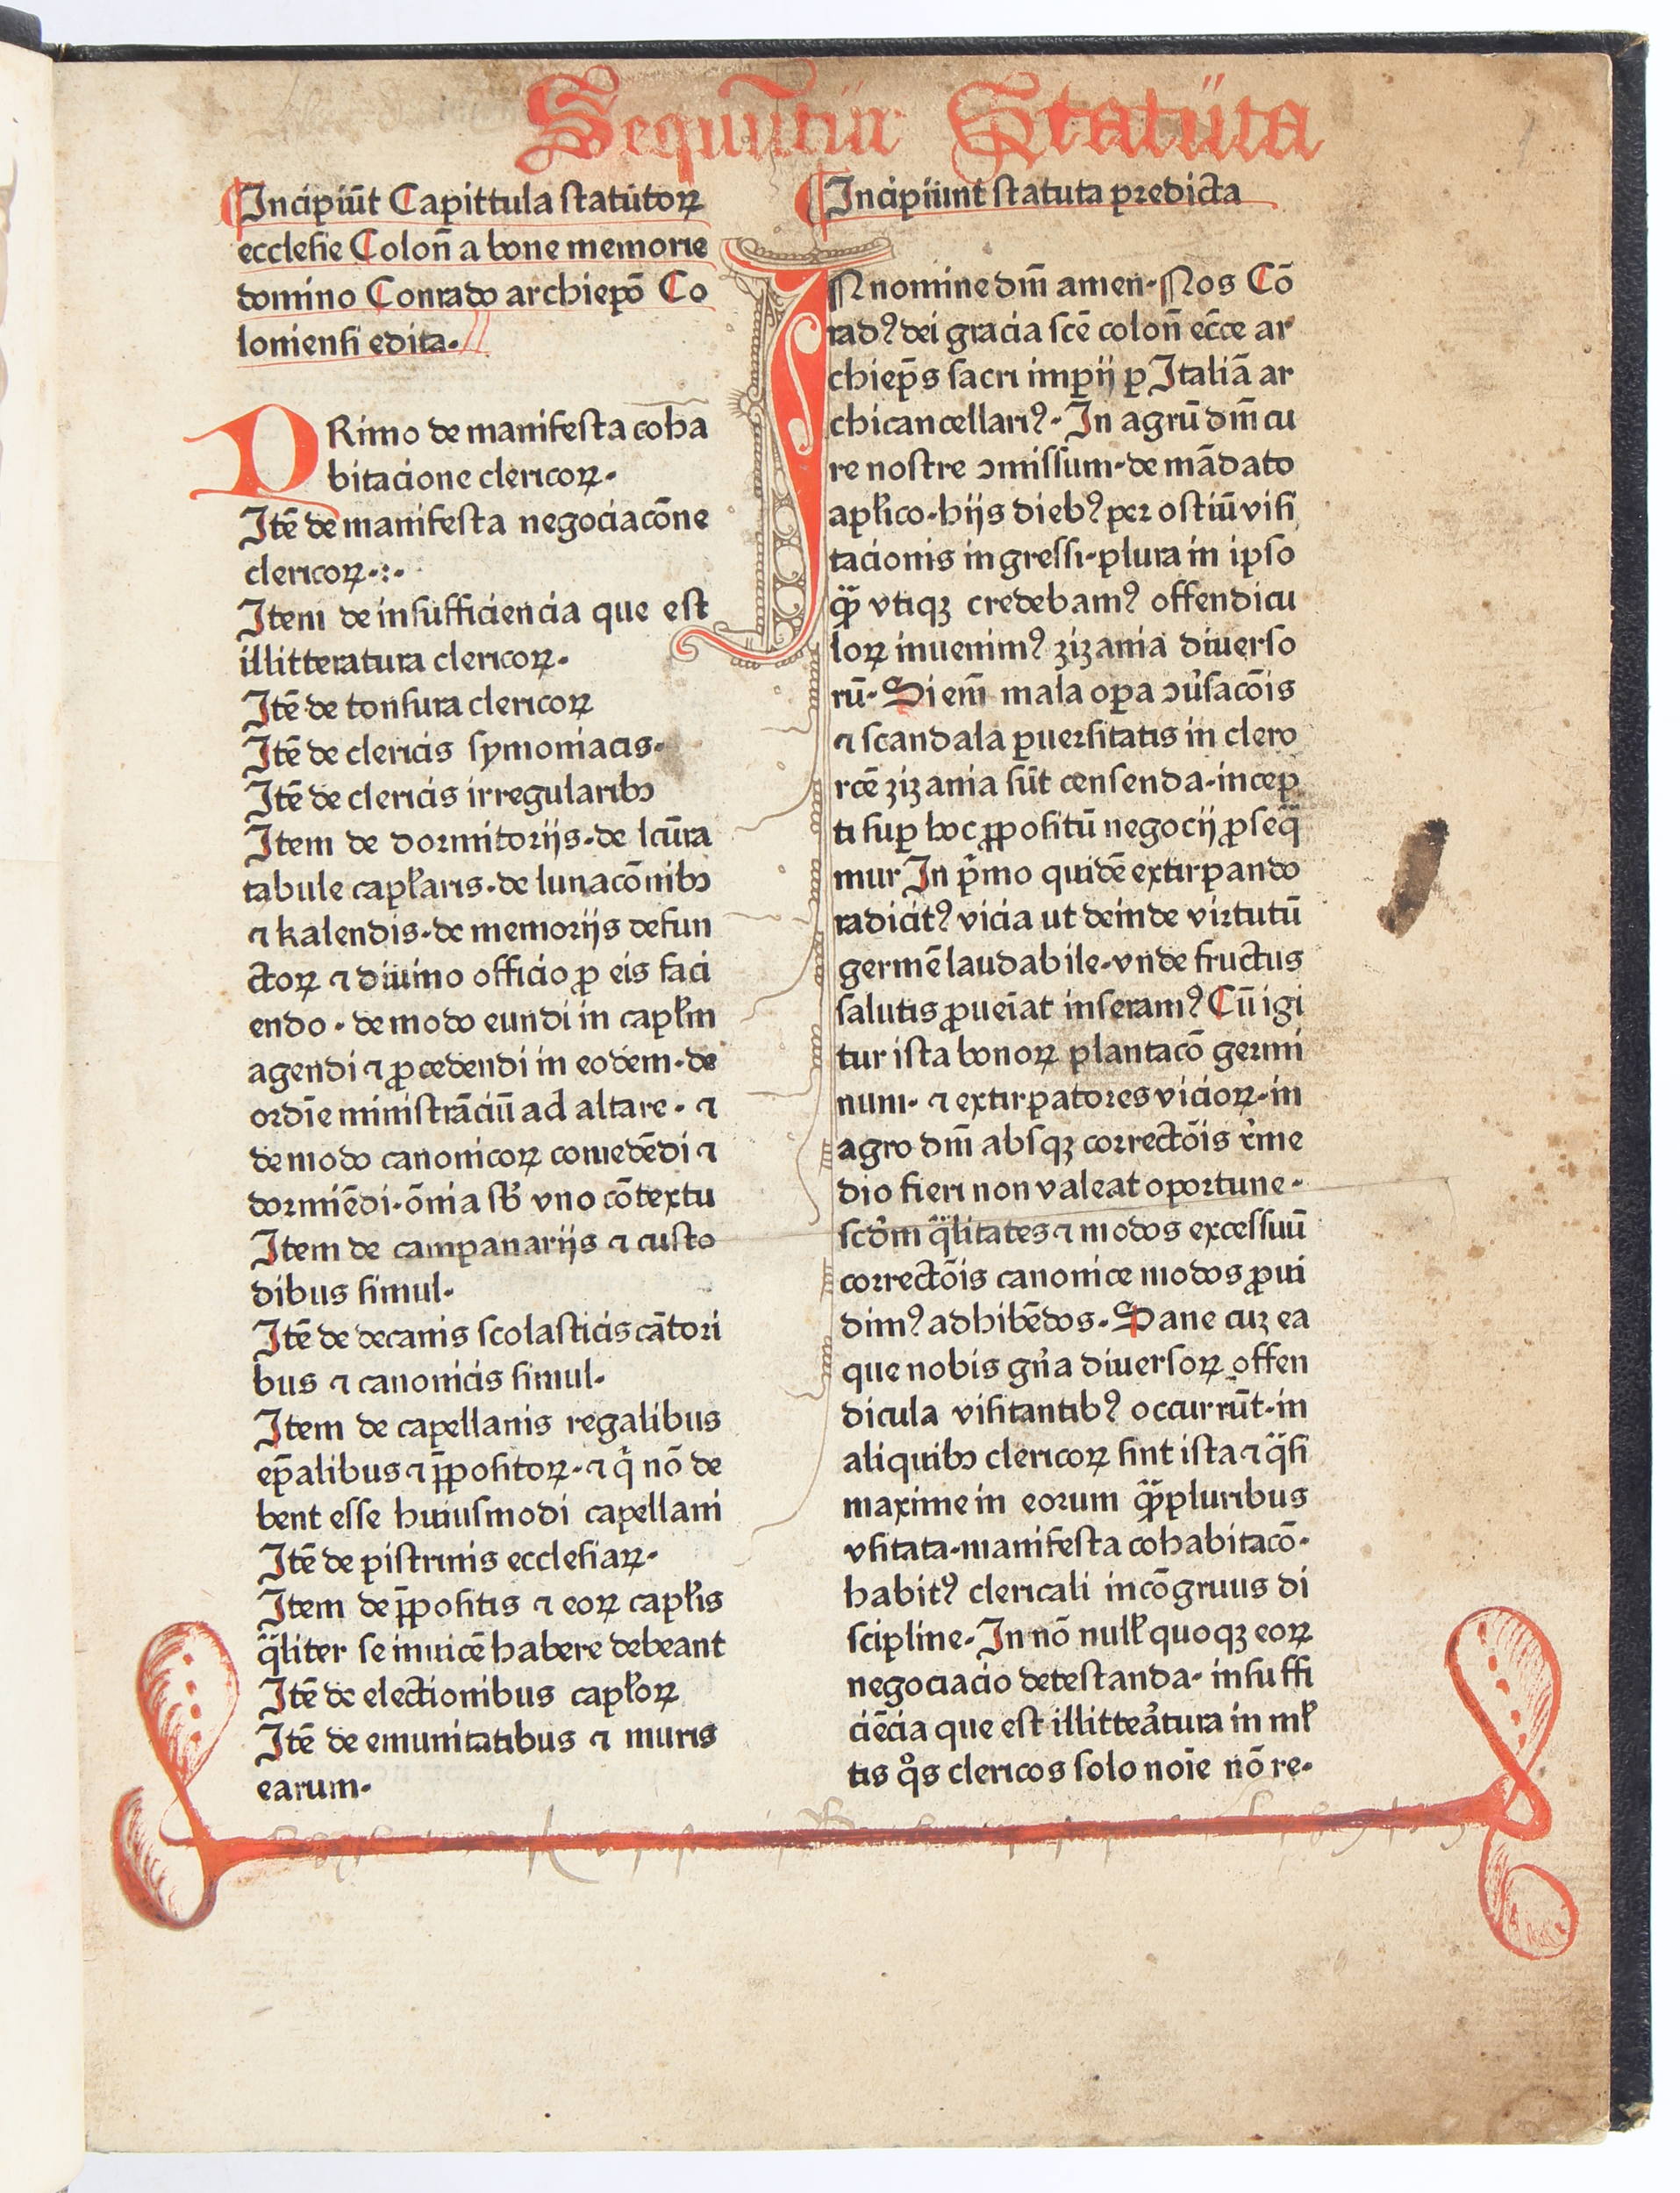 Sequūtur Statuta
Incipiūt Capittula statutoꝝ
ecclesie Coloñ a bone memorie
domino Conrado archiepō Co
loniensi edita.
PRimo de manifesta coha
bitacione clericoꝝ.
Itē de manifesta negociacōne
clericoꝝ.:.
Item de insufficiencia que est
illitteratura clericoꝝ.
Itē de tonsura clericoꝝ
Itē de clericis symoniacis.
Itē de clericis irregularibꝰ
Item de dormitorijs.de lcūra
tabule capłaris.de lunacōnibꝰ
⁊ kalendis.de memorijs defun
ctoꝝ ⁊ diuino officio ꝓ eis faci
endo. de modo eundi in capłm
agendi ⁊ ꝓcedendi in eodem.de
ordīe ministrāciū ad altare. ⁊
de modo canonicoꝝ comedēdi ⁊
dormiēdi.ōnia sƀ vno cōtextu
Item de campanarijs ⁊ custo
dibus simul.
Itē de decanis scolasticis cātori
bus ⁊ canonicis simul.
Item de capellanis regalibus
ep̄alibus ⁊ p̄positoꝝ.⁊ qͥ nō de
bent esse huiusmodi capellani
Itē de pistrinis ecclesiaꝝ.
Item de p̄positis ⁊ eoꝝ capłis
qͣliter se inuicē habere debeant
Itē de electionibus capłoꝝ
Itē de emunitatibus ⁊ muris
earum.
Incipiunt statuta predicta
IN nomine dm̄ amen.Nos Cō
radꝰ dei gracia scē coloñ ecc̄e ar
chiep̄s sacri imꝑij ꝑ Italiā ar
chicancellariꝰ.In agrū dm̄ cu
re nostre ↄmissum.de mādato
apłico.hijs diebꝰ per ostiū visi
tacionis ingressi.plura in ipso
qͣꝫ vtiqꝫ credebamꝰ offendicu
loꝝ inuenimꝰ zizania diuerso
rū. Si em̄ mala opa ↄuͥsacōis
⁊ scandala ꝑuersitatis in clero
rcē zizania sūt censenda.incep
ti suꝑ hoc ꝓpositū negocij ꝓseqͣ
mur In pͥmo quidē extirpando
radicitꝰ vicia ut deinde virtutū
germē laudabile.vnde fructus
salutis ꝓueīat inseramꝰ Cū igi
tur ista bonoꝝ plantacō germi
num. ⁊ extirpatores vicioꝝ.in
agro dm̄ absqꝫ correctōis r̾me
dio fieri non valeat oportune.
scd̾m qͣlitates ⁊ modos excessuū
correctōis canonice modos ꝓui
dimꝰ adhibēdos. Sane cuꝫ ea
que nobis gn̾a diuersoꝝ offen
dicula visitantibꝰ occurrūt.in
aliquibꝰ clericoꝝ sint ista ⁊ qͣsi
maxime in eorum qͣꝫpluribus
vsitata.manifesta cohabitacō.
habitꝰ clericali incōgruus di
scipline.In nō nulł quoqꝫ eoꝝ
negociacio detestanda. insuffi
ciēcia que est illitteͣtura in mł
tis qͦs clericos solo noīe nō re.